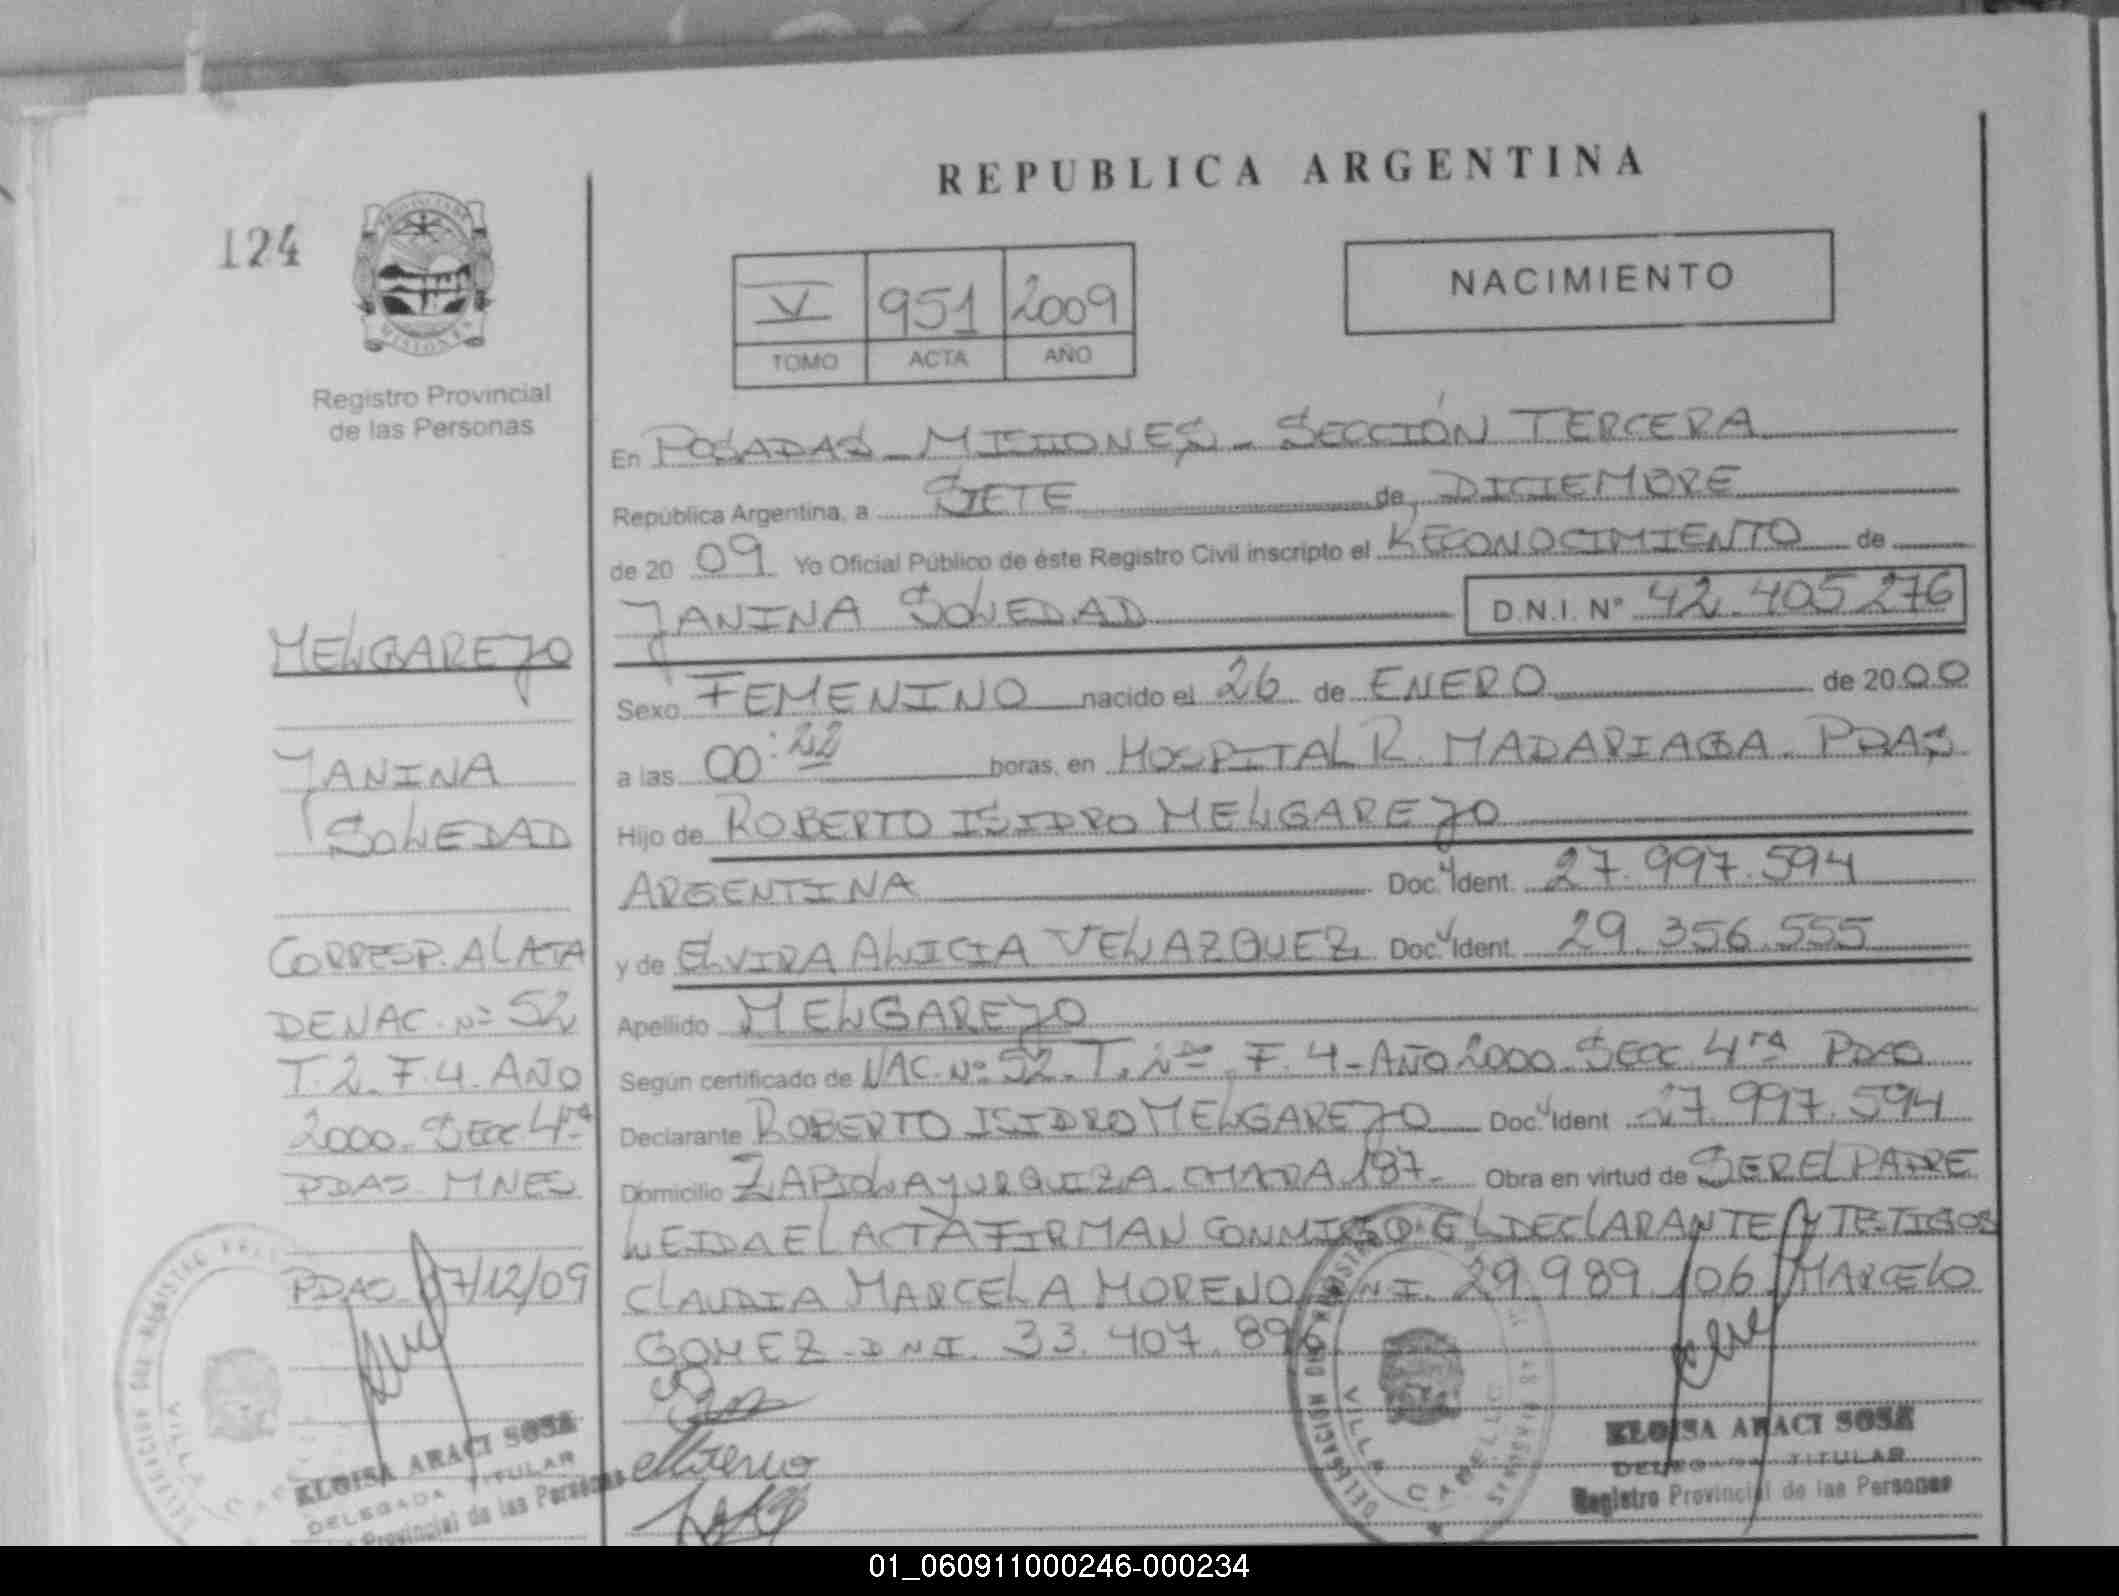 REPUBLICA ARGENTINA
124
PROVINCIA DE
MISIONES
Registro Provincial
de las Personas
V 951 2009
TOMO ACTA AÑO
NACIMIENTO
En POSADAS - MISIONES - SECCIÓN TERCERA
República Argentina, a SIETE de DICIEMBRE
de 20 09 Yo Oficial Público de éste Registro Civil inscripto el RECONOCIMIENTO de
JANINA SOLEDAD D.N.I. Nº 42.405.276
Sexo FEMENINO nacido el 26 de ENERO de 2000
a las 00:22 horas, en HOSPITAL R. MADARIAGA. PDAS
Hijo de ROBERTO ISIDRO MELGAREJO
ARGENTINA Doc. Ident. 27.997.594
y de ELVIRA ALICIA VELAZQUEZ Doc. Ident. 29.356.555
Apellido MELGAREJO
Según certificado de NAC. Nº 52. T. F. 4 - AÑO 2000. SECC. 4ta PDAS
Declarante ROBERTO ISIDRO MELGAREJO Doc. Ident 27.997.594
Domicilio ZAPIOLA Y URQUIZA. CHACRA 187. Obra en virtud de SER EL PADRE
LEIDA EL ACTA FIRMAN CONMIGO EL DECLARANTE Y TESTIGOS
CLAUDIA MARCELA MORENO D.N.I. 29.989.106 MARCELO
GOMEZ. D.N.I. 33.407.896
MELGAREJO
JANINA
SOLEDAD
CORRESP. AL ACTA
DE NAC. Nº 52
T. 2. F. 4. AÑO
2000. SECC 4ta
PDAS MNES
PDAS 07/12/09
ELOISA ARACI SOSA
DELEGADA TITULAR
Provincial de las Personas
Moreno
DELEGACION
VILLA CABELLO
ELOISA ARACI SOSA
DELEGADA TITULAR
Registro Provincial de las Personas
01_060911000246-000234